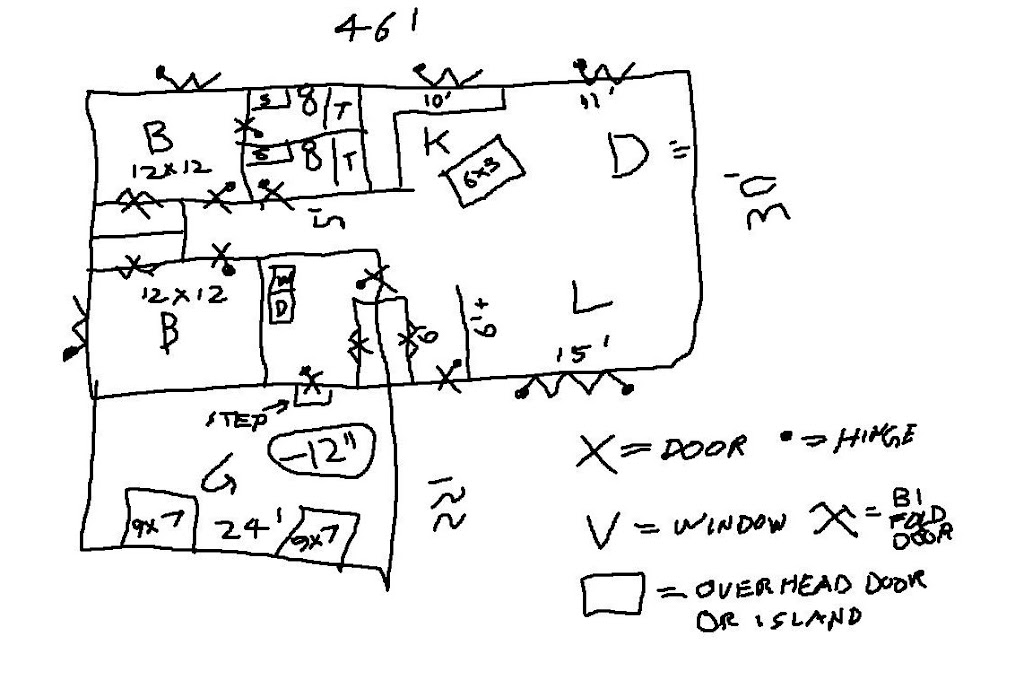 46'
S 8 T
10'
11'
B
12x12
S 8 T
K
6x3
D =
30'
5'
12x12
B
W
D
6'
6'+
L
15'
STEP
-12"
G
9x7
24'
9x7
22'
X = DOOR • = HINGE
V = WINDOW X = BI FOLD DOOR
= OVERHEAD DOOR
OR ISLAND